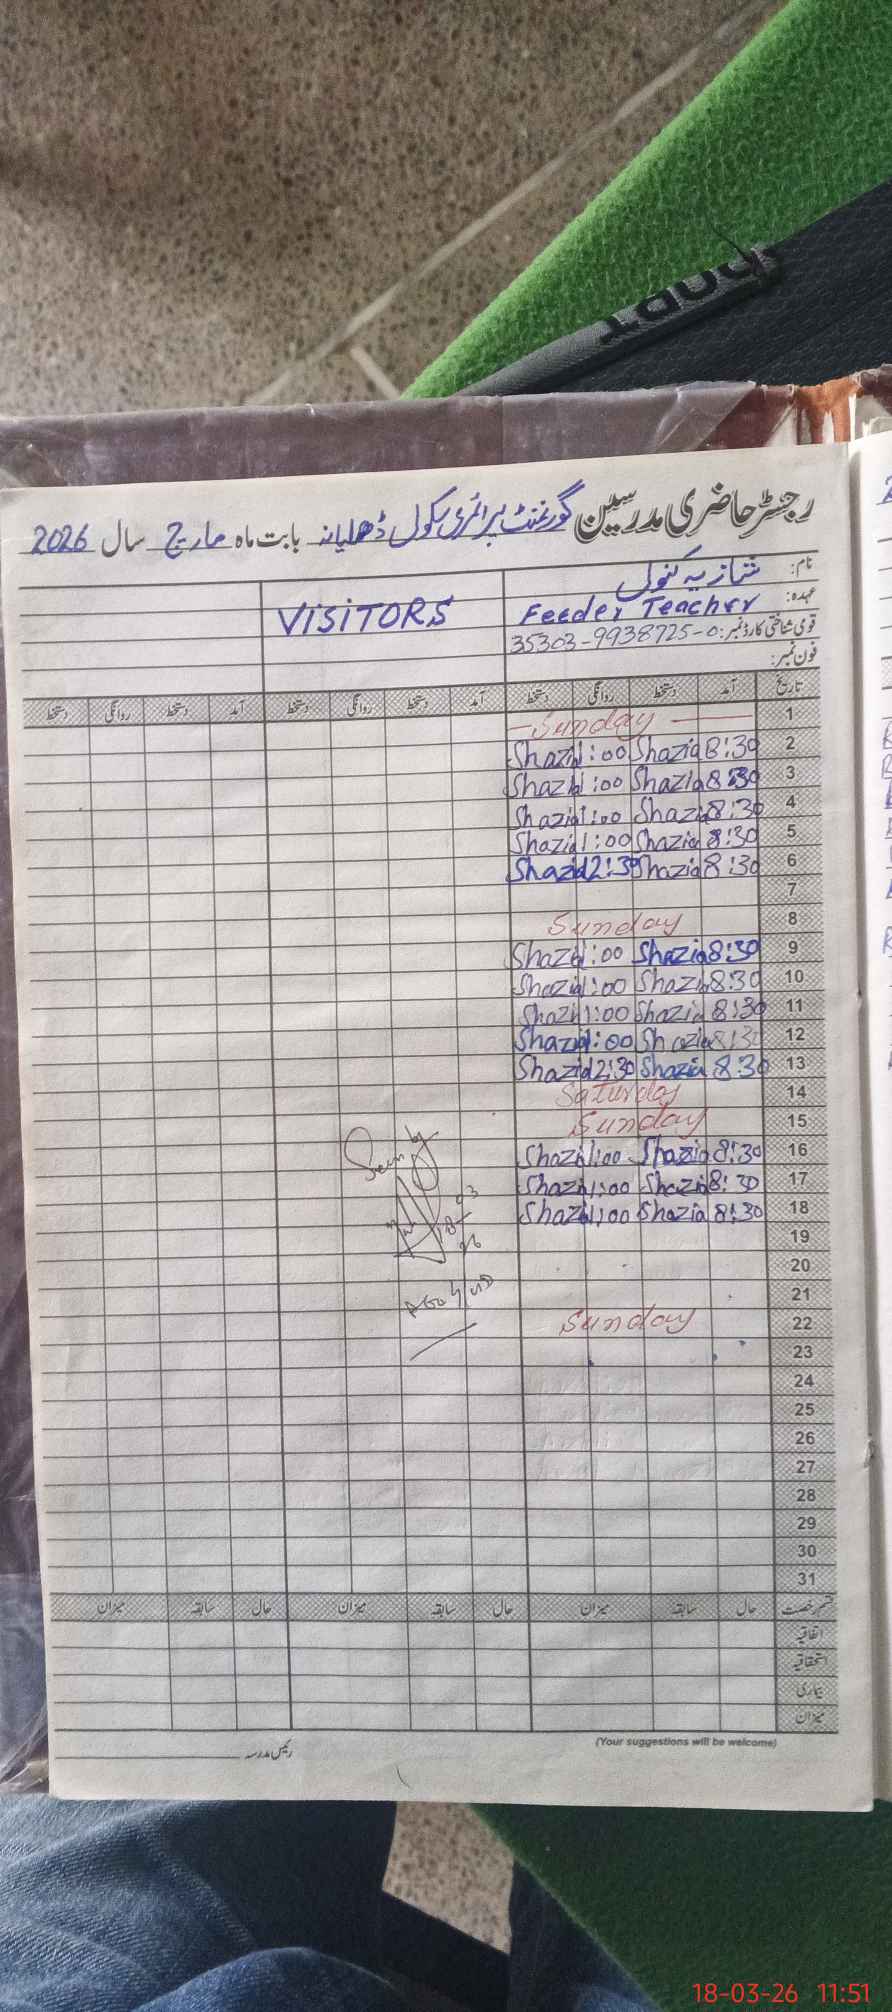 PORT
رجسٹر حاضری مدرسین گورنمنٹ پرائمری سکول ڈھلیانہ بابت ماہ مارچ سال 2026
نام: شازیہ کنول
عہدہ: Feeder Teacher VISITORS
قومی شناختی کارڈ نمبر: 35303-9938725-0
فون نمبر:
تاریخ آمد دستخط روانگی دستخط آمد دستخط روانگی دستخط آمد دستخط روانگی دستخط
1 Sunday
2 8:30 Shazia 1:00 Shazia
3 8:30 Shazia 1:00 Shazia
4 8:30 Shazia 1:00 Shazia
5 8:30 Shazia 1:00 Shazia
6 8:30 Shazia 12:30 Shazia
7
8 Sunday
9 8:30 Shazia 1:00 Shazia
10 8:30 Shazia 1:00 Shazia
11 8:30 Shazia 1:00 Shazia
12 8:30 Shazia 1:00 Shazia
13 8:30 Shazia 12:30 Shazia
14 Saturday
15 Sunday
16 8:30 Shazia 1:00 Shazia
17 8:30 Shazia 1:00 Shazia
18 8:30 Shazia 1:00 Shazia
19
20
21
22 Sunday
23
24
25
26
27
28
29
30
31
Seen by
18-03-26
قسم رخصت حال سابقہ میزان حال سابقہ میزان حال سابقہ میزان
اتفاقیہ
استحقاقیہ
بیماری
میزان
(Your suggestions will be welcome)
رئیس مدرسہ
18-03-26 11:51